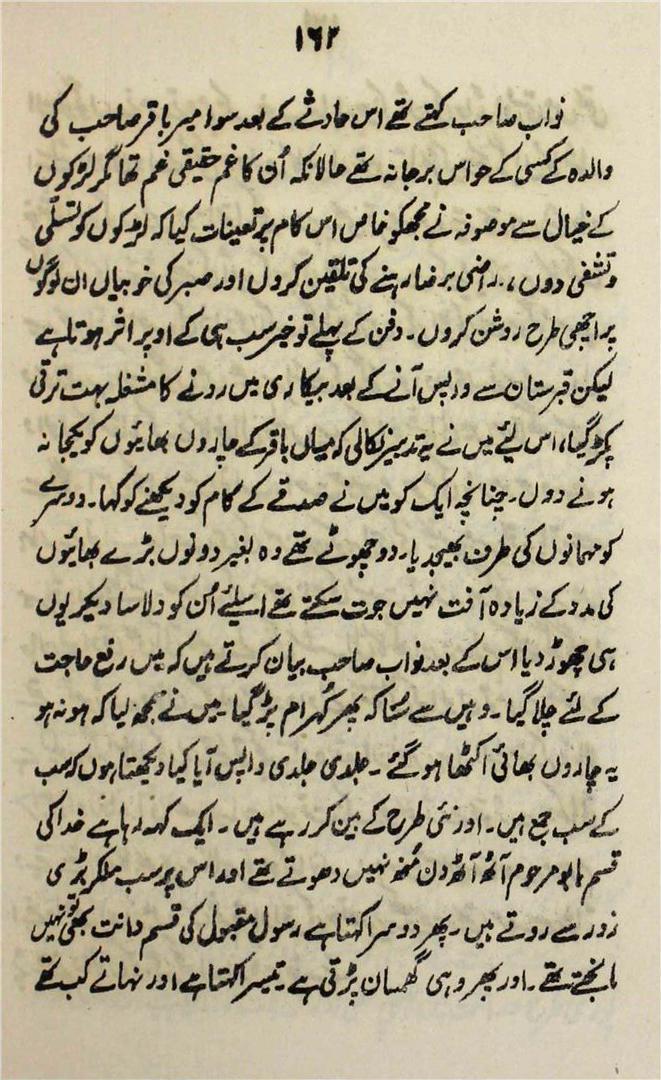 ۱۶۲
نواب صاحب کہتے تھے اس حادثے کے بعد سوا میر باقر صاحب کی
والدہ کے کسی کے حواس برجا نہ تھے حالانکہ اُن کا غم حقیقی غم تھا مگر لڑکوں
کے خیال سے موصوفہ نے مجھکو خاص اس کام پر تعینات کیا کہ لڑکوں کو تسلّی
و تشفی دوں، راضی برضا رہنے کی تلقین کروں اور صبر کی خوبیاں ان لوگوں
پر اچھی طرح روشن کروں۔ دفن کے پہلے تو خیر سب ہی کے اوپر اثر ہوتا ہے
لیکن قبرستان سے واپس آنے کے بعد بیکاری میں رونے کا مشغلہ بہت ترقی
پکڑ گیا، اس لئے میں نے یہ تدبیر نکالی کہ میاں باقر کے چاروں بھائیوں کو یکجا نہ
ہونے دوں۔ چنانچہ ایک کو میں نے صدقے کے کام کو دیکھنے کو کہا۔ دوسرے
کو مہمانوں کی طرف بھیجدیا۔ دو چھوٹے تھے وہ بغیر دونوں بڑے بھائیوں
کی مدد کے زیادہ آفت نہیں جوت سکتے تھے اسلئے اُن کو دلاسا دیکر یوں
ہی چھوڑ دیا اس کے بعد نواب صاحب بیان کرتے ہیں کہ میں رفع حاجت
کے لئے چلا گیا۔ وہیں سے سُنا کہ پھر کہرام پڑ گیا۔ میں نے سمجھ لیا کہ ہو نہ ہو
یہ چاروں بھائی اکٹھا ہو گئے۔ جلدی جلدی واپس آیا کیا دیکھتا ہوں کہ سب
کے سب جمع ہیں۔ اور نئی طرح کے بین کر رہے ہیں۔ ایک کہہ رہا ہے خدا کی
قسم بابو مرحوم آٹھ آٹھ دن مُنھ نہیں دھوتے تھے اور اس پر سب ملکر بڑی
زور سے روتے ہیں۔ پھر دوسرا کہتا ہے رسول مقبول کی قسم دانت بھی نہیں
مانجھتے تھے۔ اور پھر وہی گھمسان پڑتی ہے تیسرا کہتا ہے اور نہاتے کب تھے